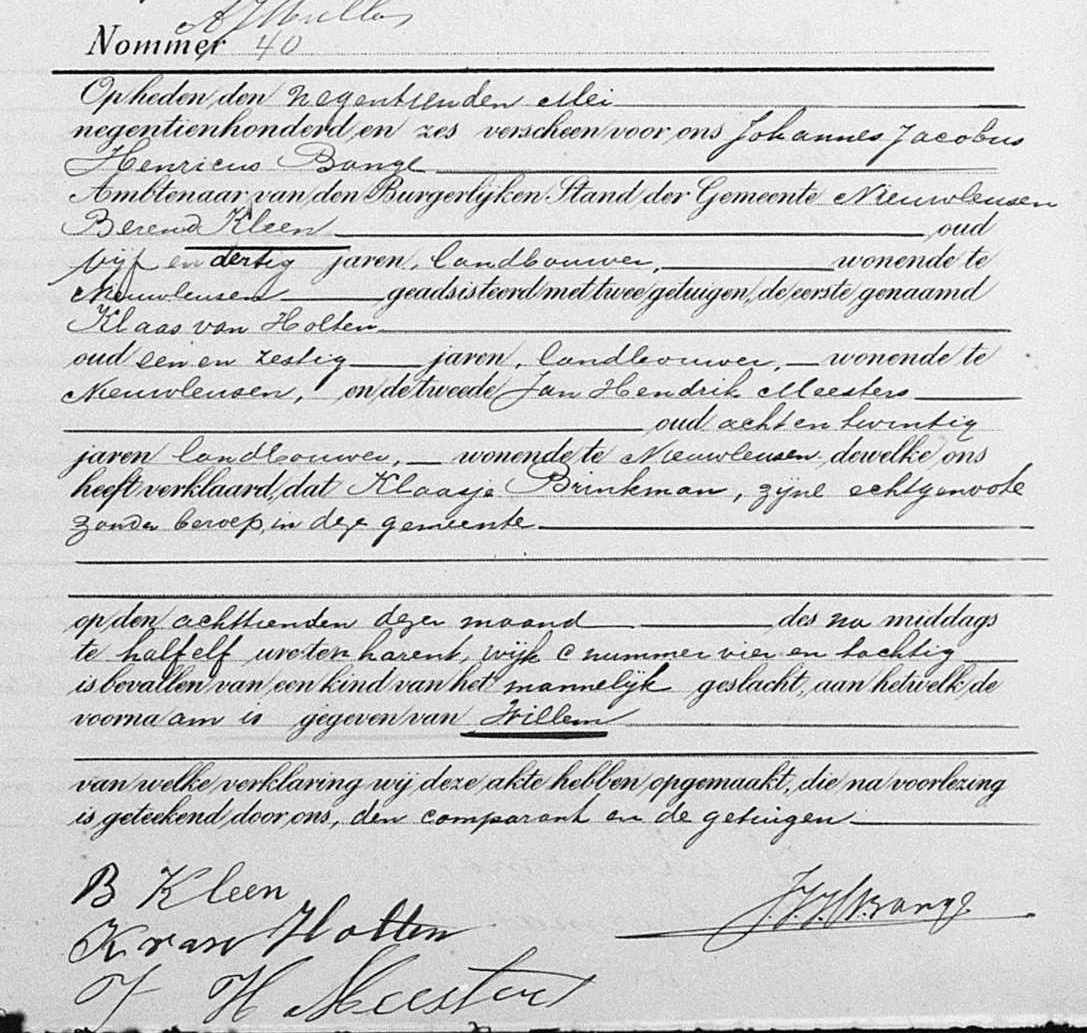 Nommer 40
Op heden den negentienden Mei
negentienhonderd en zes verscheen voor ons Johannes Jacobus
Henricus Bange
Ambtenaar van den Burgerlijken Stand der Gemeente Nieuwleusen
Berend Kleen oud
vijf en dertig jaren, landbouwer, wonende te
Nieuwleusen geadsisteerd met twee getuigen, de eerste genaamd
Klaas van Holten
oud een en zestig jaren, landbouwer, wonende te
Nieuwleusen, en de tweede Jan Hendrik Meesters
oud acht en twintig
jaren landbouwer, wonende te Nieuwleusen dewelke ons
heeft verklaard, dat Klaasje Brinkman, zijne echtgenoote
zonder beroep, in deze gemeente
op den achttienden dezer maand des na middags
te half elf ure ten harent, wijk C nummer vier en tachtig
is bevallen van een kind van het mannelijk geslacht, aan hetwelk de
voornaam is gegeven van Willem
van welke verklaring wij deze akte hebben opgemaakt, die na voorlezing
is geteekend door ons, den comparant en de getuigen
B Kleen
K van Holten
J H Meesters
J.J.H. Bange